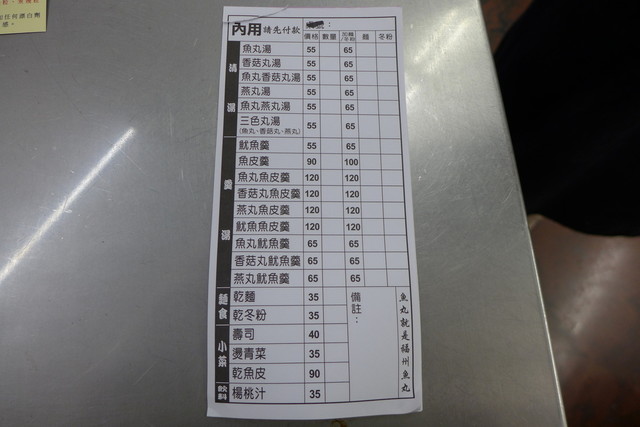 內用 請先付款 價格 數量 加麵/冬粉 麵 冬粉
清湯
魚丸湯 55 65
香菇丸湯 55 65
魚丸香菇丸湯 55 65
燕丸湯 55 65
魚丸燕丸湯 55 65
三色丸湯 55 65
(魚丸、香菇丸、燕丸)
羹湯
魷魚羹 55 65
魚皮羹 90 100
魚丸魚皮羹 120 120
香菇丸魚皮羹 120 120
燕丸魚皮羹 120 120
魷魚魚皮羹 120 120
魚丸魷魚羹 65 65
香菇丸魷魚羹 65 65
燕丸魷魚羹 65 65
麵食
乾麵 35
乾冬粉 35
小菜
壽司 40
燙青菜 35
乾魚皮 90
飲料
楊桃汁 35
備註：
魚丸就是福州魚丸